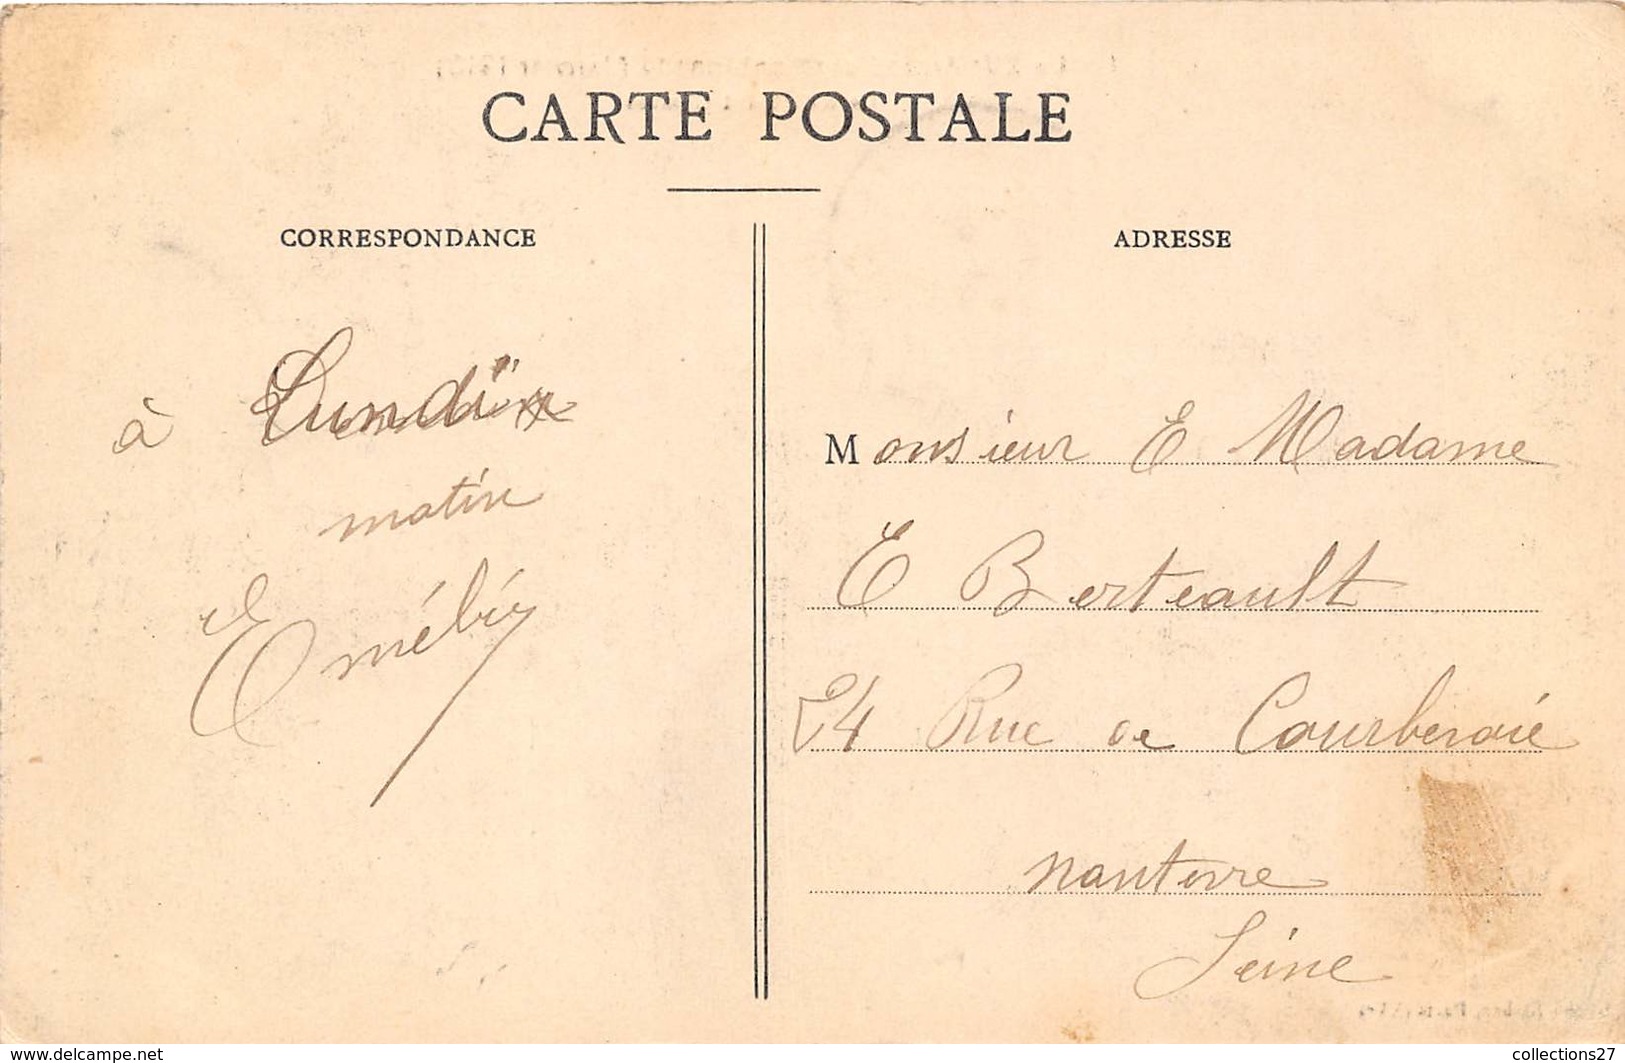 CARTE POSTALE
CORRESPONDANCE
à Lundi
matin
ADRESSE
Monsieur E Madame
E Berteault
24 Rue de Courbevoie
Nanterre
Seine
www.delcampe.net
collections27